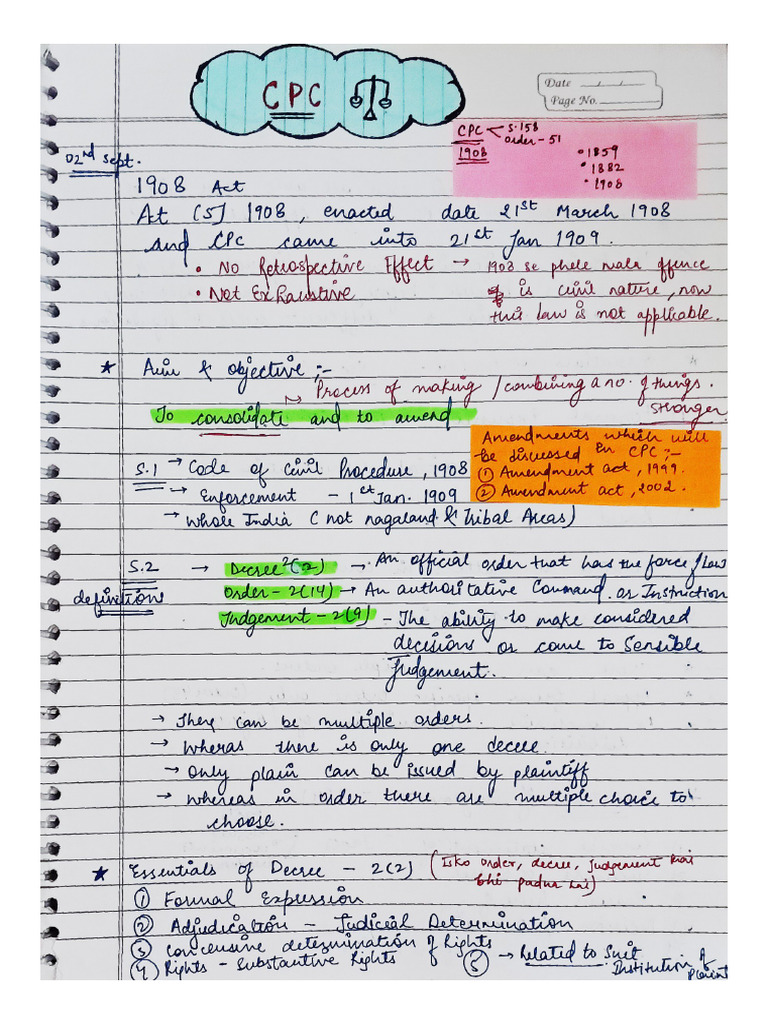 CPC
Date / /
Page No.
CPC S.158
order - 51
1908
• 1859
• 1882
• 1908
02nd Sept.
1908 Act
At (5) 1908, enacted date 21st March 1908
and CPC came into 21st Jan 1909.
• No Retrospective Effect → 1908 se phele wala offence
is civil nature, now
this law is not applicable.
• Not Exhaustive
* Aim & objective ;-
Process of making / combining a no. of things.
Stronger
To consolidate and to amend
Amendments which will
be discussed in CPC ;-
① Amendment act, 1999.
② Amendment act, 2002.
S.1 → Code of Civil Procedure, 1908
→ Enforcement - 1st Jan. 1909
→ whole India ( not nagaland & Tribal Areas)
S.2 → Decree 2(2) → An official order that has the force of law
definitions
Order - 2(14) → An authoritative Command. or Instruction
Judgement - 2(9) - The ability to make considered
decisions or come to Sensible
Judgement.
→ There can be multiple orders.
→ Wheras there is only one decree.
→ Only plain can be issued by plaintiff
→ whereas in order there are multiple choice to
choose.
* Essentials of Decree - 2(2) (Isko order, decree, judgement mai
bhi padna hai)
① Formal Expression
② Adjudication - Judicial Determination
③ Conclusive determination of Rights
④ Rights - Substantive Rights
⑤ → Related to Suit
Institution of
Plaint